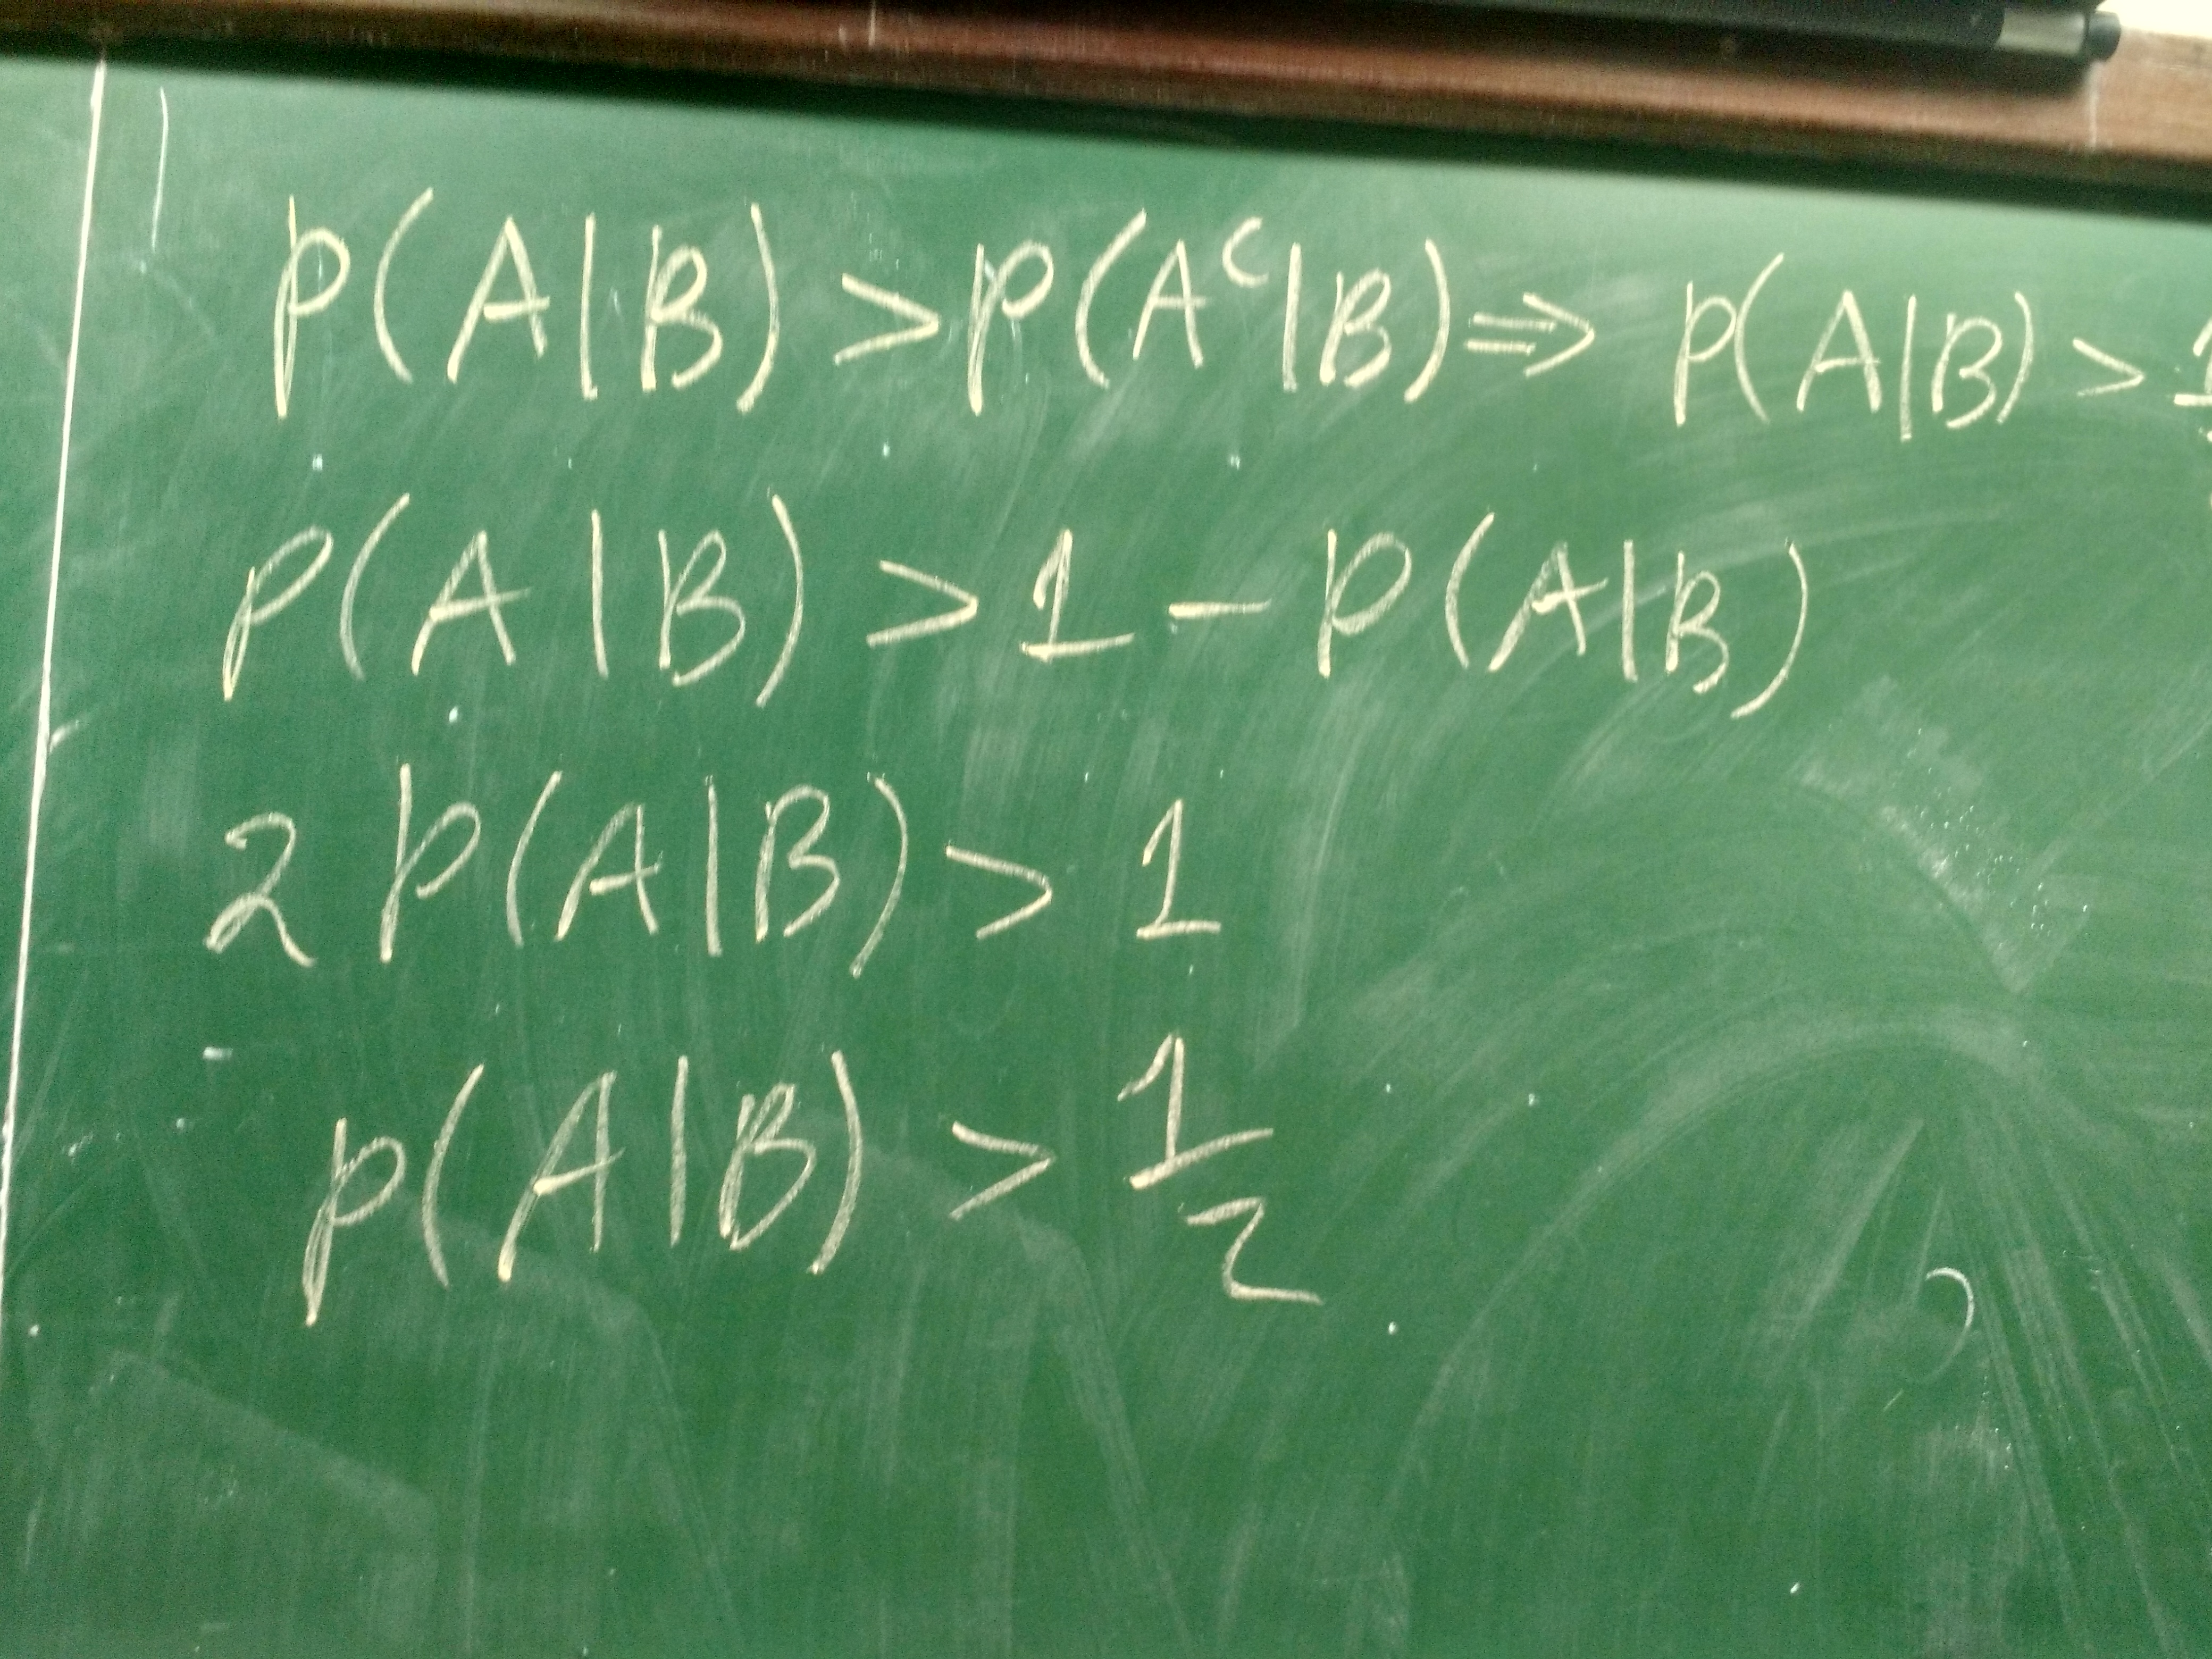 P(A|B) > P(Aᶜ|B) ⇒ P(A|B) > 1
P(A|B) > 1 - P(A|B)
2 P(A|B) > 1
P(A|B) > 1/2